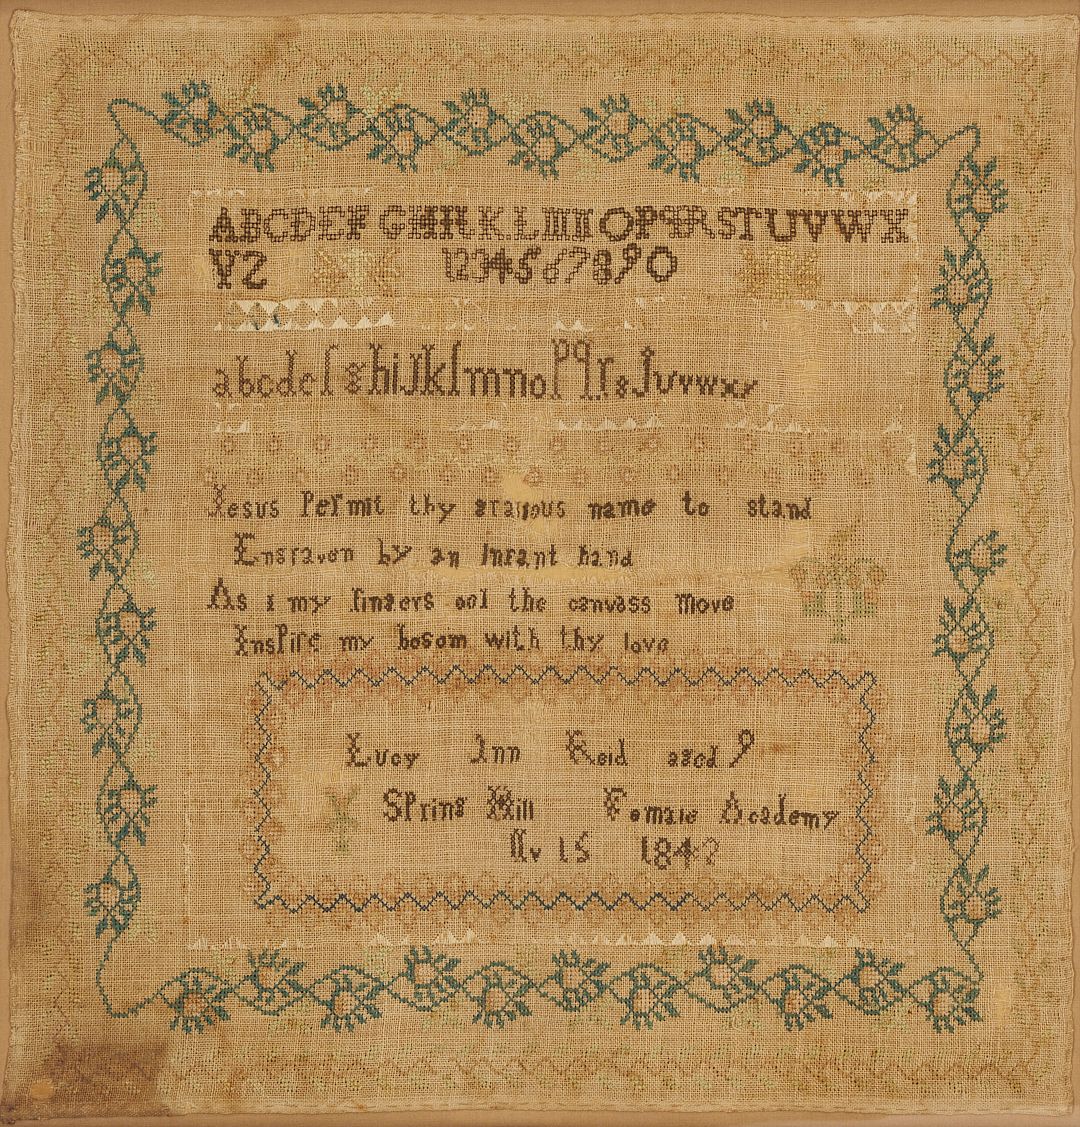 ABCDEFGHIJKLMNOPQRSTUVWX
YZ 1234567890
abcdefghijklmnopqrsJuvwxy
Jesus Permit thy gracious name to stand
Engraven by an Infant hand
As i my fingers oel the canvass Move
Inspire my bosom with thy love
Lucy Ann Reid aged 9
Spring Hill Female Academy
Nv 15 184